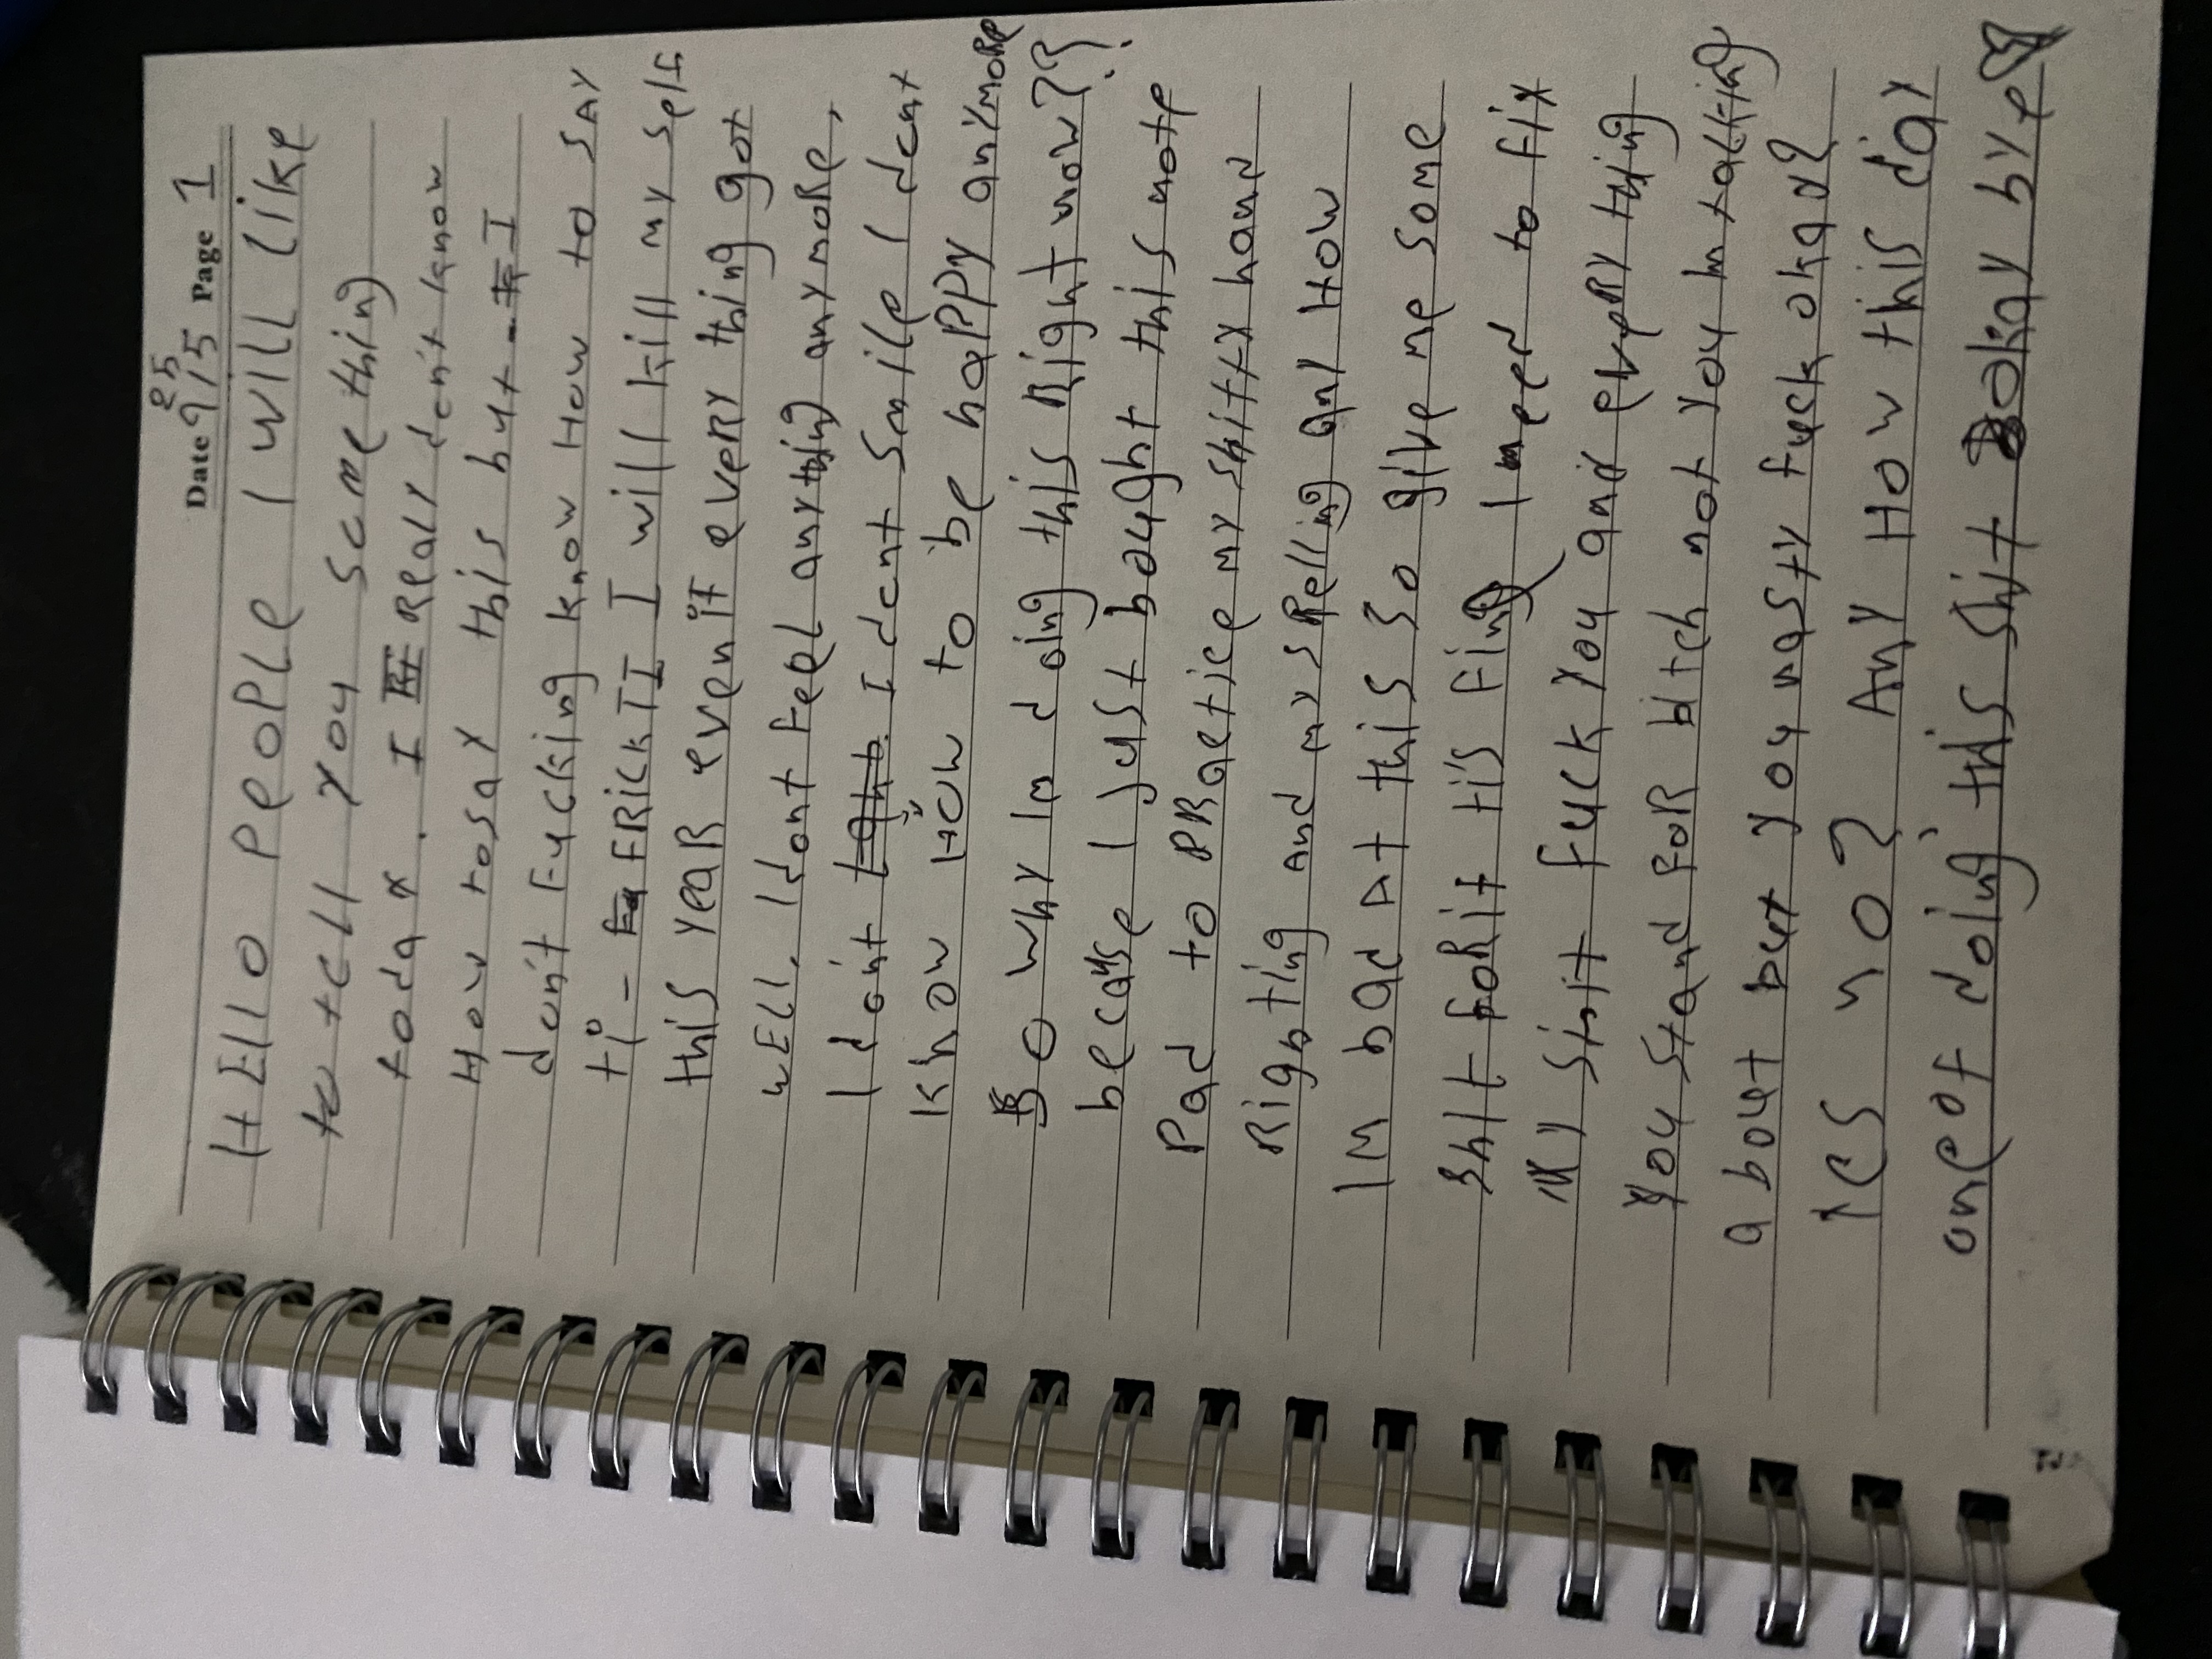 Date 9/5 25 Page 1
HEllO PEOPLE I WILL like
to tell you something
today. I Realy don't know
How to say this but - I
don't Fucking know How to SAY
ti - FRICK II I will kill my self
this yeaR even if eveRy thing got
wEll, I dont feel anything anymoRe,
I don't I dont smile I dont
Know How to be haPPy anymoRe
So why Im doing this Right now??!
becaus I just bought this note
Pad to PRactice my shitty hand
Righting And my sPelling any How
IM bad AT this so give me some
shit foRit ti's Fing I need to fix
my shit Fuck you and eveRy thing
You stand foR bitch not you Im talking
about but you nasty fuck okay?
yes no? Any How this day
one of doing this shit Bokay bye